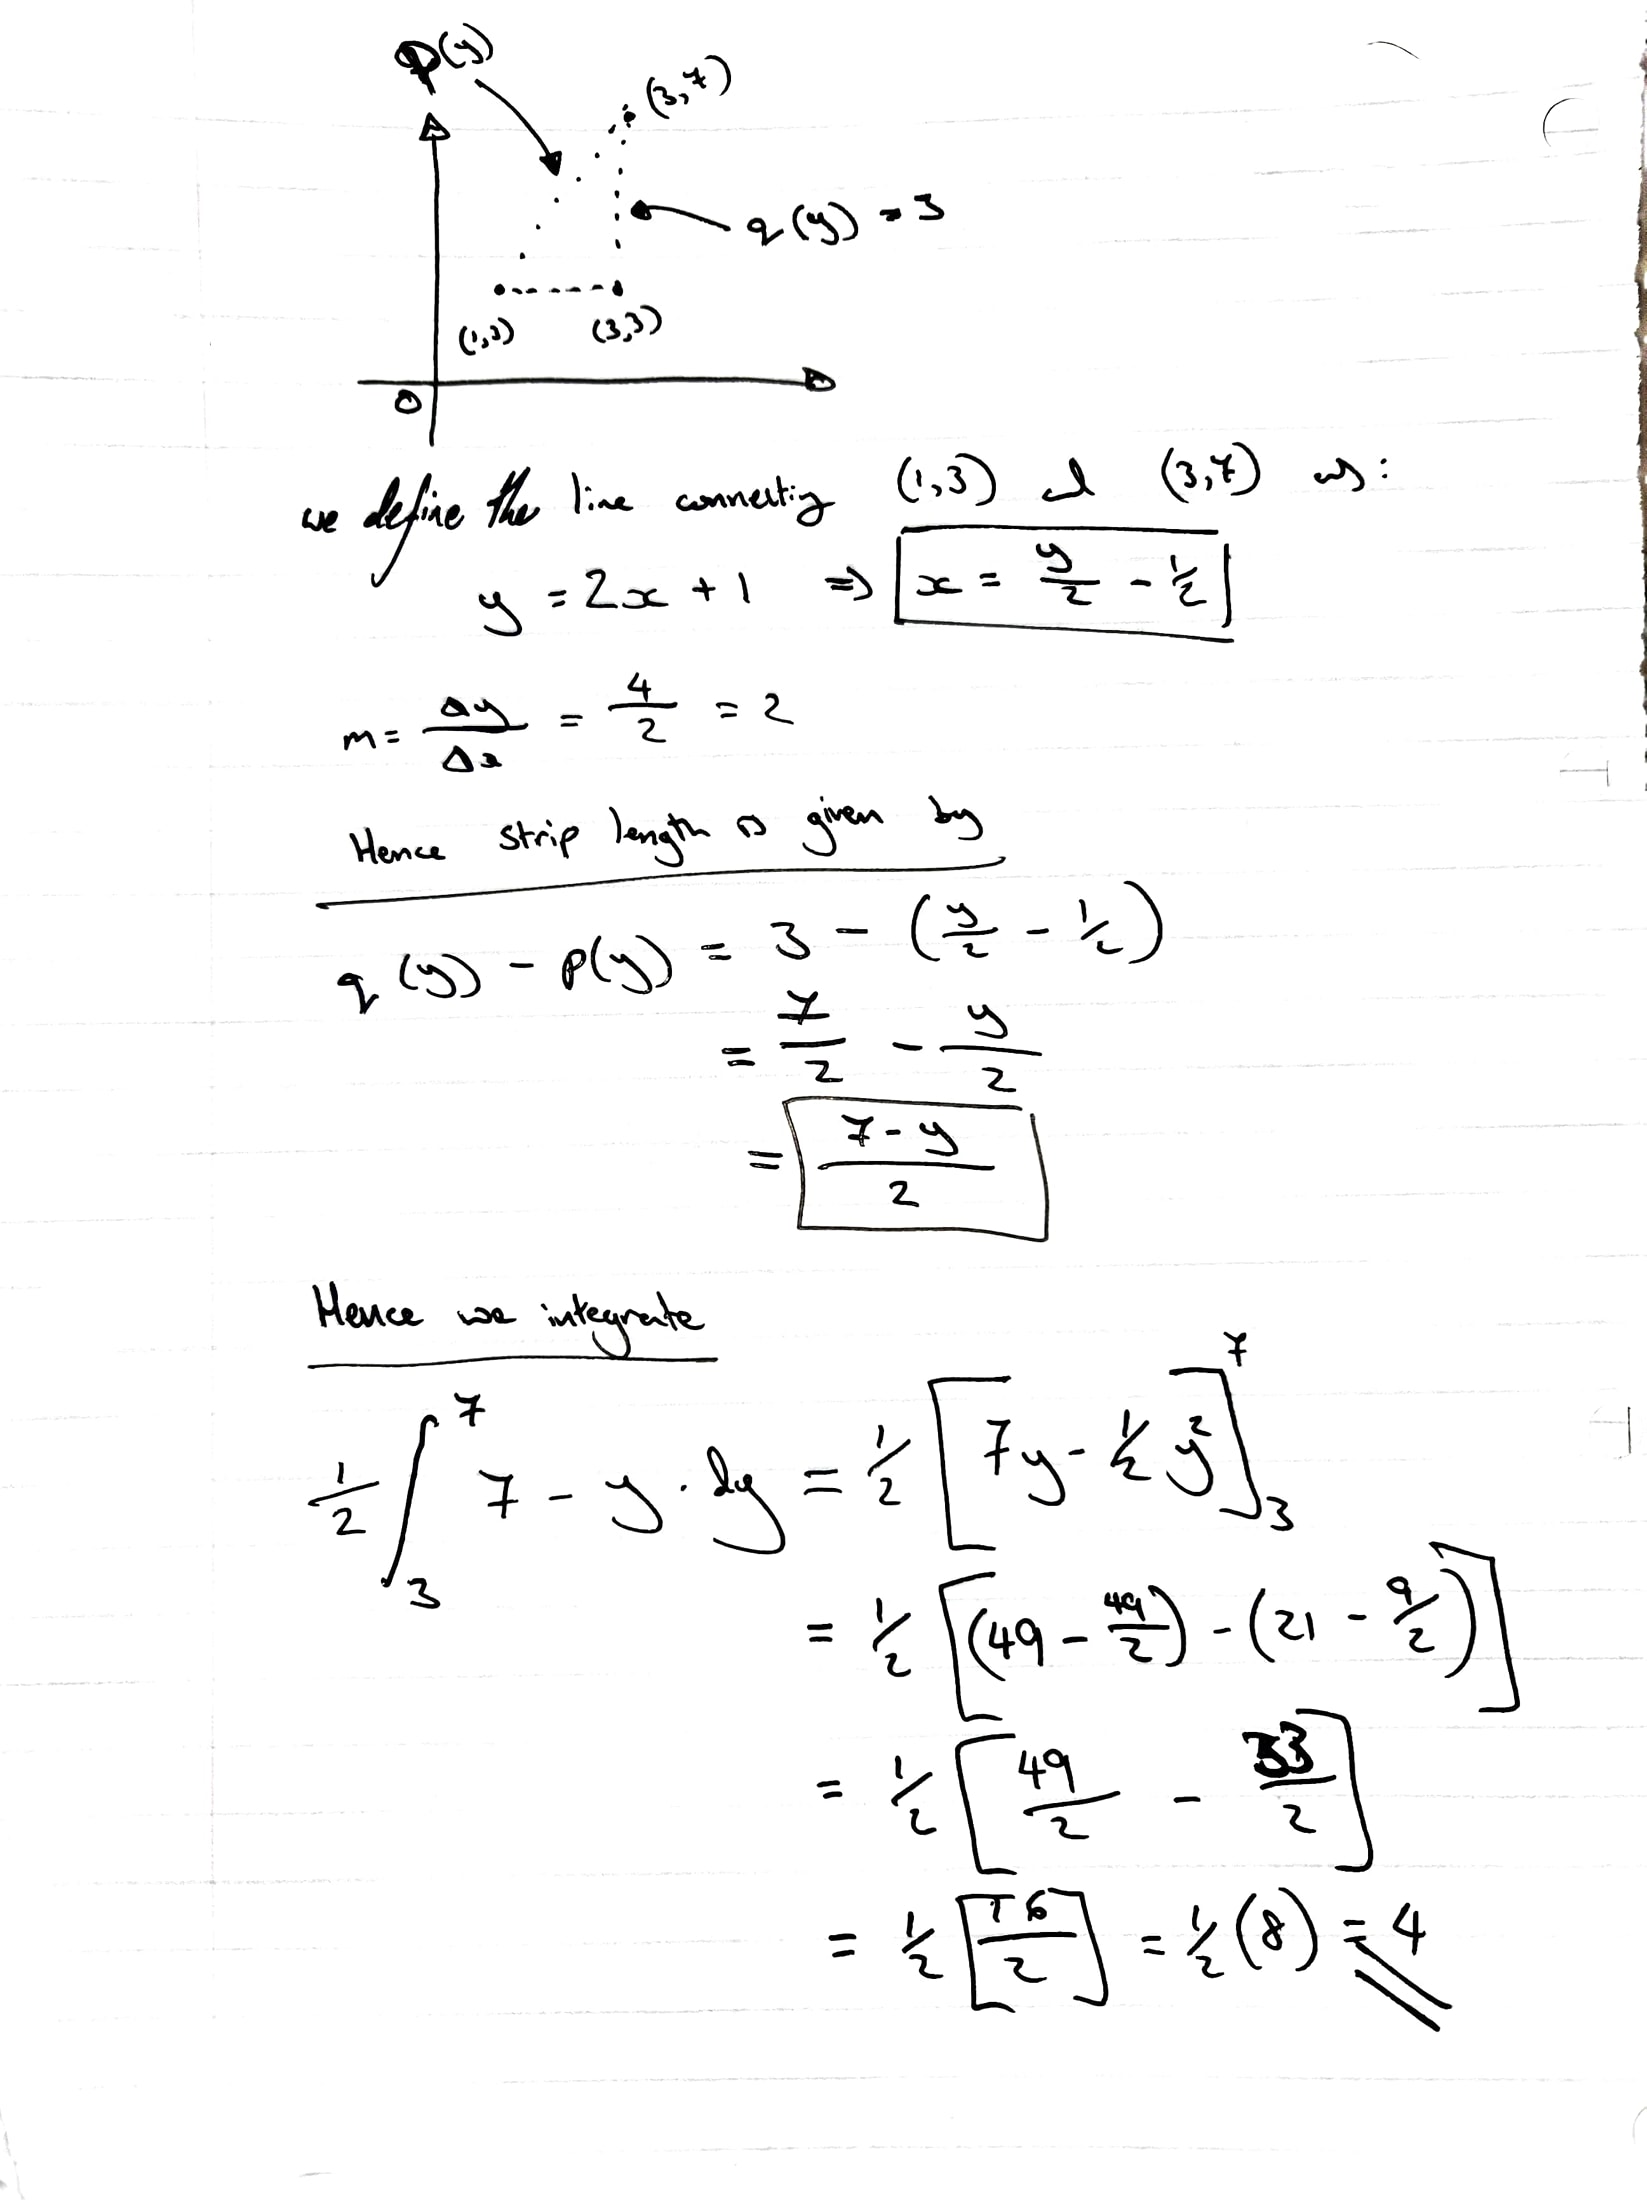 p(y)
(3,7)
q(y) = 3
(1,3) (3,3)
0
we define the line connecting (1,3) and (3,7) as:
y = 2x + 1 ⇒ x = y/2 - 1/2
m = Δy/Δx = 4/2 = 2
Hence strip length is given by
q(y) - p(y) = 3 - (y/2 - 1/2)
= 7/2 - y/2
= (7-y)/2
Hence we integrate
1/2 ∫₃⁷ 7 - y · dy = 1/2 [7y - 1/2 y²]₃⁷
= 1/2 [(49 - 49/2) - (21 - 9/2)]
= 1/2 [49/2 - 33/2]
= 1/2 [16/2] = 1/2 (8) = 4